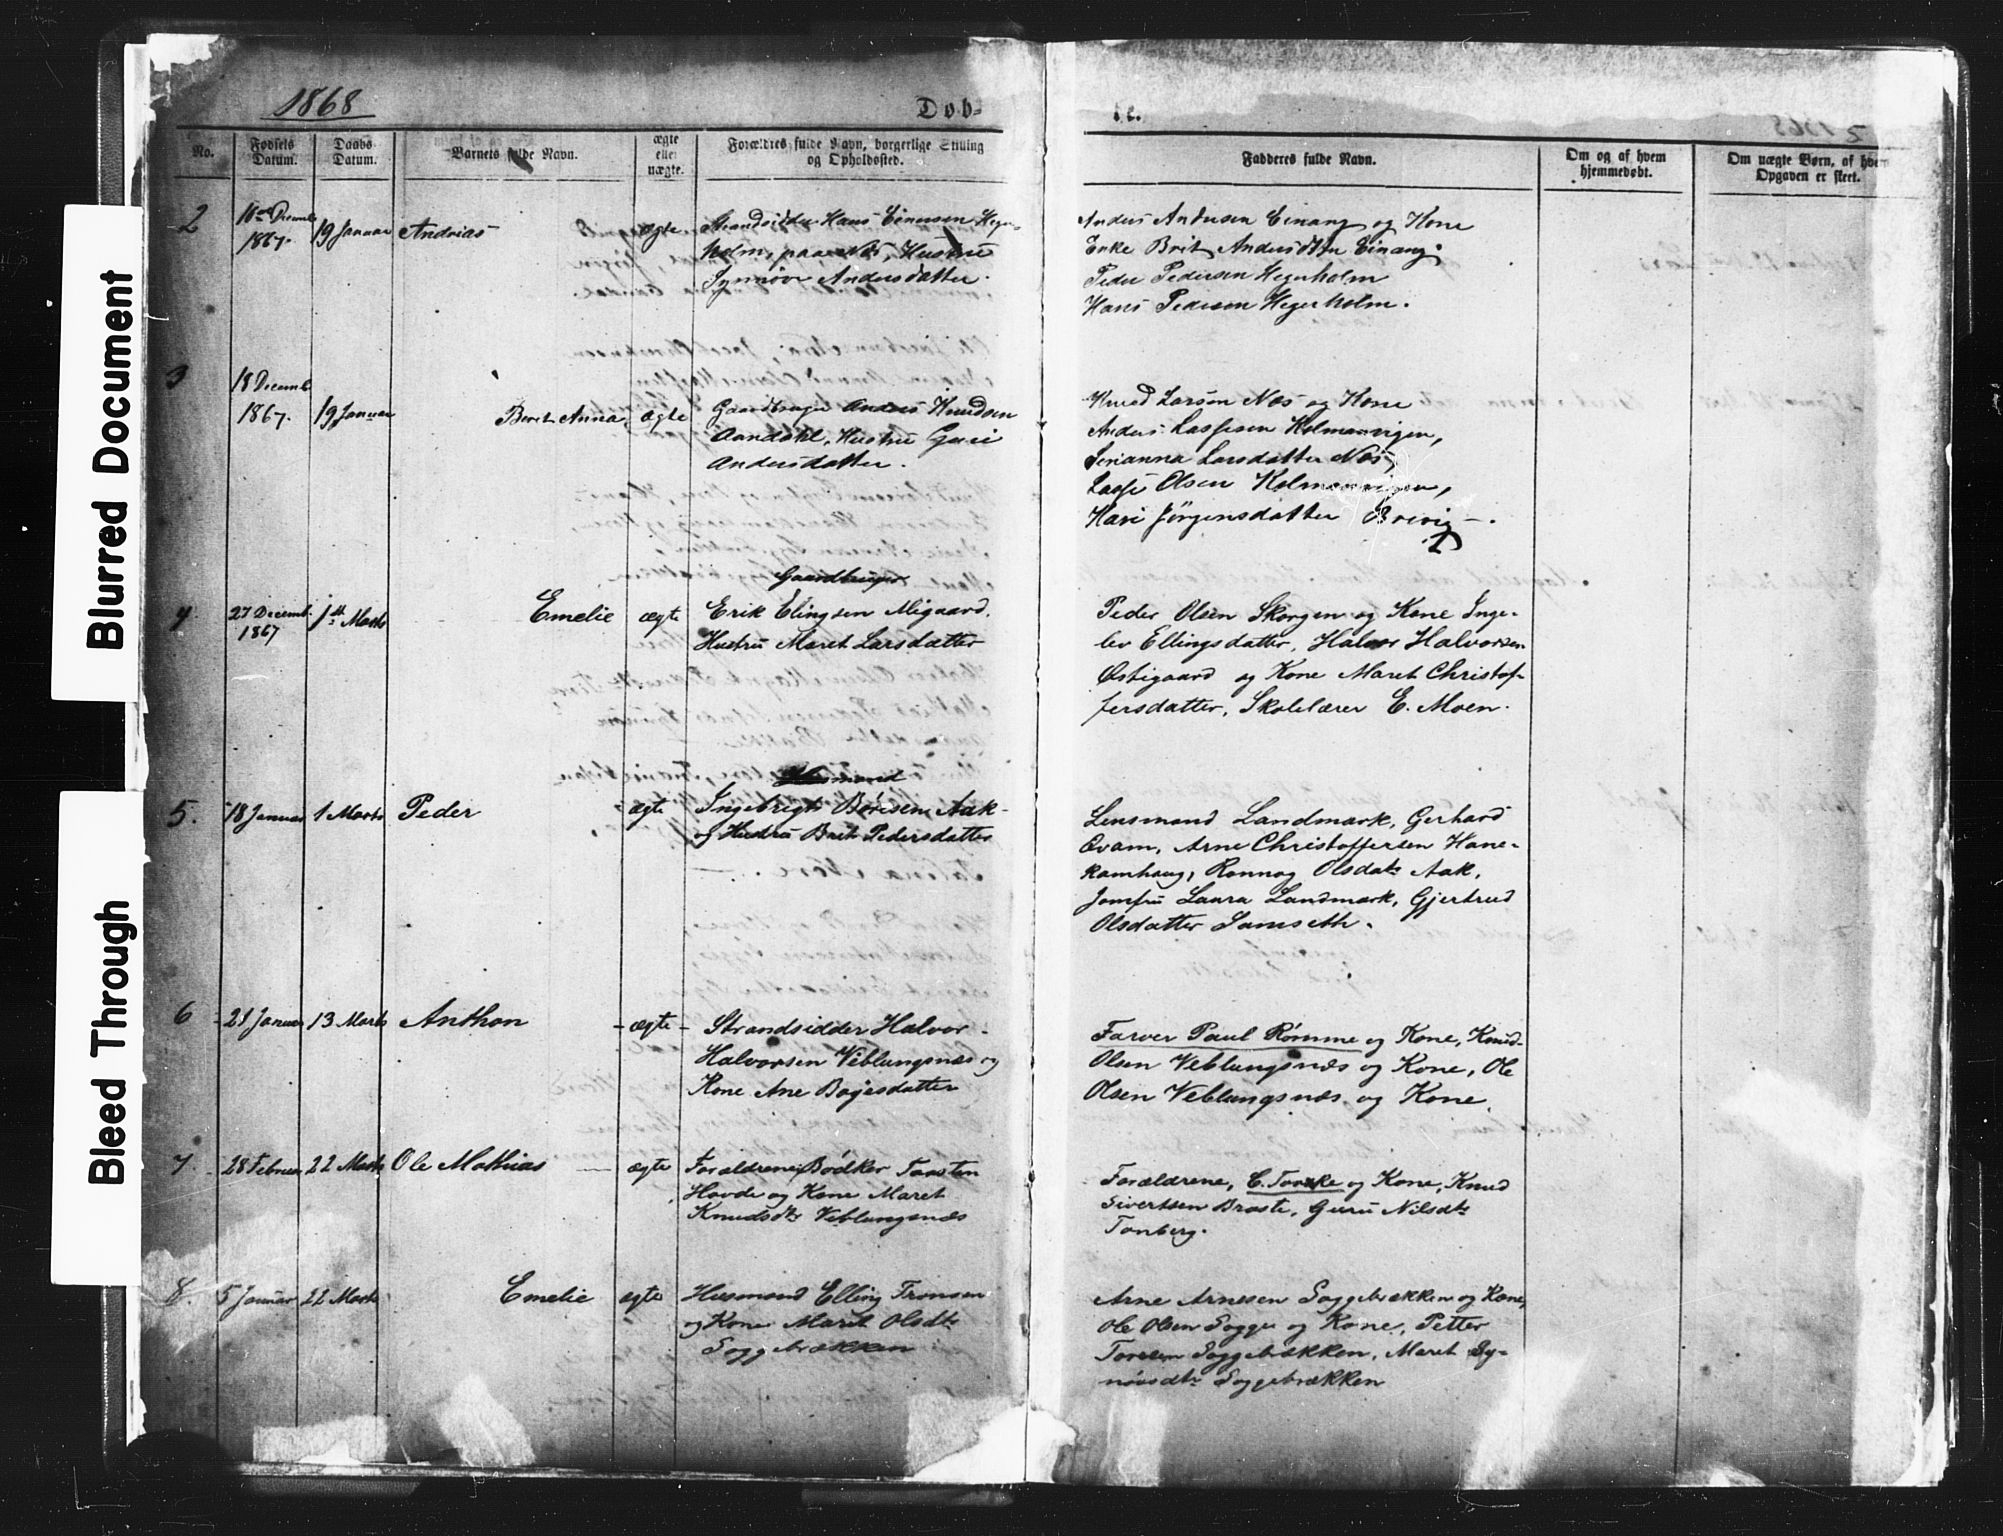 Blurred Document
Bleed Through
1868
Døb-
te.
No.
Fødsels Datum.
Daabs Datum.
Barnets fulde Navn.
ægte eller uægte.
Forældres fulde Navn, borgerlige Stilling og Opholdssted.
Fadderes fulde Navn.
Om og af hvem hjemmedøbt.
Om uægte Børn, af hvem Opgaven er skeet.
2
1867.
19 Januar
Andrias
ægte
Strandsidder Hans Einersen Hegerholm, paa Næs, Hustru
Synnøve Andersdatter.
Anders Andersen Einang og Kone
Enke Brit Andersdtter Einang.
Peder Pedersen Hegerholm
Hans Pedersen Hegerholm.
3
18 Decemb
1867.
19 Januar
Berit Anna
ægte
Gaardbruger Anders Knudsen
Aandahl, Hustru Guri
Andersdatter.
Knud Larsen Næs og Kone
Anders Lassesen Holmemvigen,
Serianna Larsdatter Næs
Lasse Olsen
Kari Jørgensdatter Brevig
4
27 Decemb.
1867
1st Marts
Emelie
ægte
Gaardbruger
Erik Elingsen Migaard.
Hustru Maret Larsdatter
Peder Olsen Skorgen og Kone Inge-
lev Ellingsdatter, Halvor Halvorsen
Østigaard og Kone Maret Christof-
fersdatter, Skolelærer E. Moen.
5.
18 Januar
1 Marts
Peder
ægte
Husmand
Ingebrigt Børesen Aak
og Hustru Brit Pedersdatter
Lensmand Landmark, Gerhard
Qvam, Arne Christoffersen Hane-
kamhaug, Ronnog Olsdatr Aak,
Jomfru Laura Landmark, Gjertrud
Olsdatter Sømseth.
6
21 Januar
13 Marts
Anthon
- ægte -
Strandsidder Halvor
Halvorsen Veblungsnæs og
Kone Ane Bogesdatter
Farver Paul Rømme og Kone, Knud
Olsen Veblungsnæs og Kone, Ole
Olsen Veblungsnæs og Kone.
7.
28 Februar
22 Marts
Ole Mathias
ægte
Forældrene, Bødker Torsten
Hovde og Kone Maret
Knudsdtr Veblungsnæs
Forældrene, C. Torske og Kone, Knud
Sivertsen Brøste, Guru Nilsdtr
Tonberg.
8.
5 Januar
22 Marts
Emelie
ægte
Husmand Elling Tronsen
og Kone Marit Olsdtr
Soggebækken
Arne Arnesen Soggebækken og Kone,
Ole Olsen Sogge og Kone, Petter
Toresen Soggebækken, Maret Sy-
nøvsdtr Soggebækken